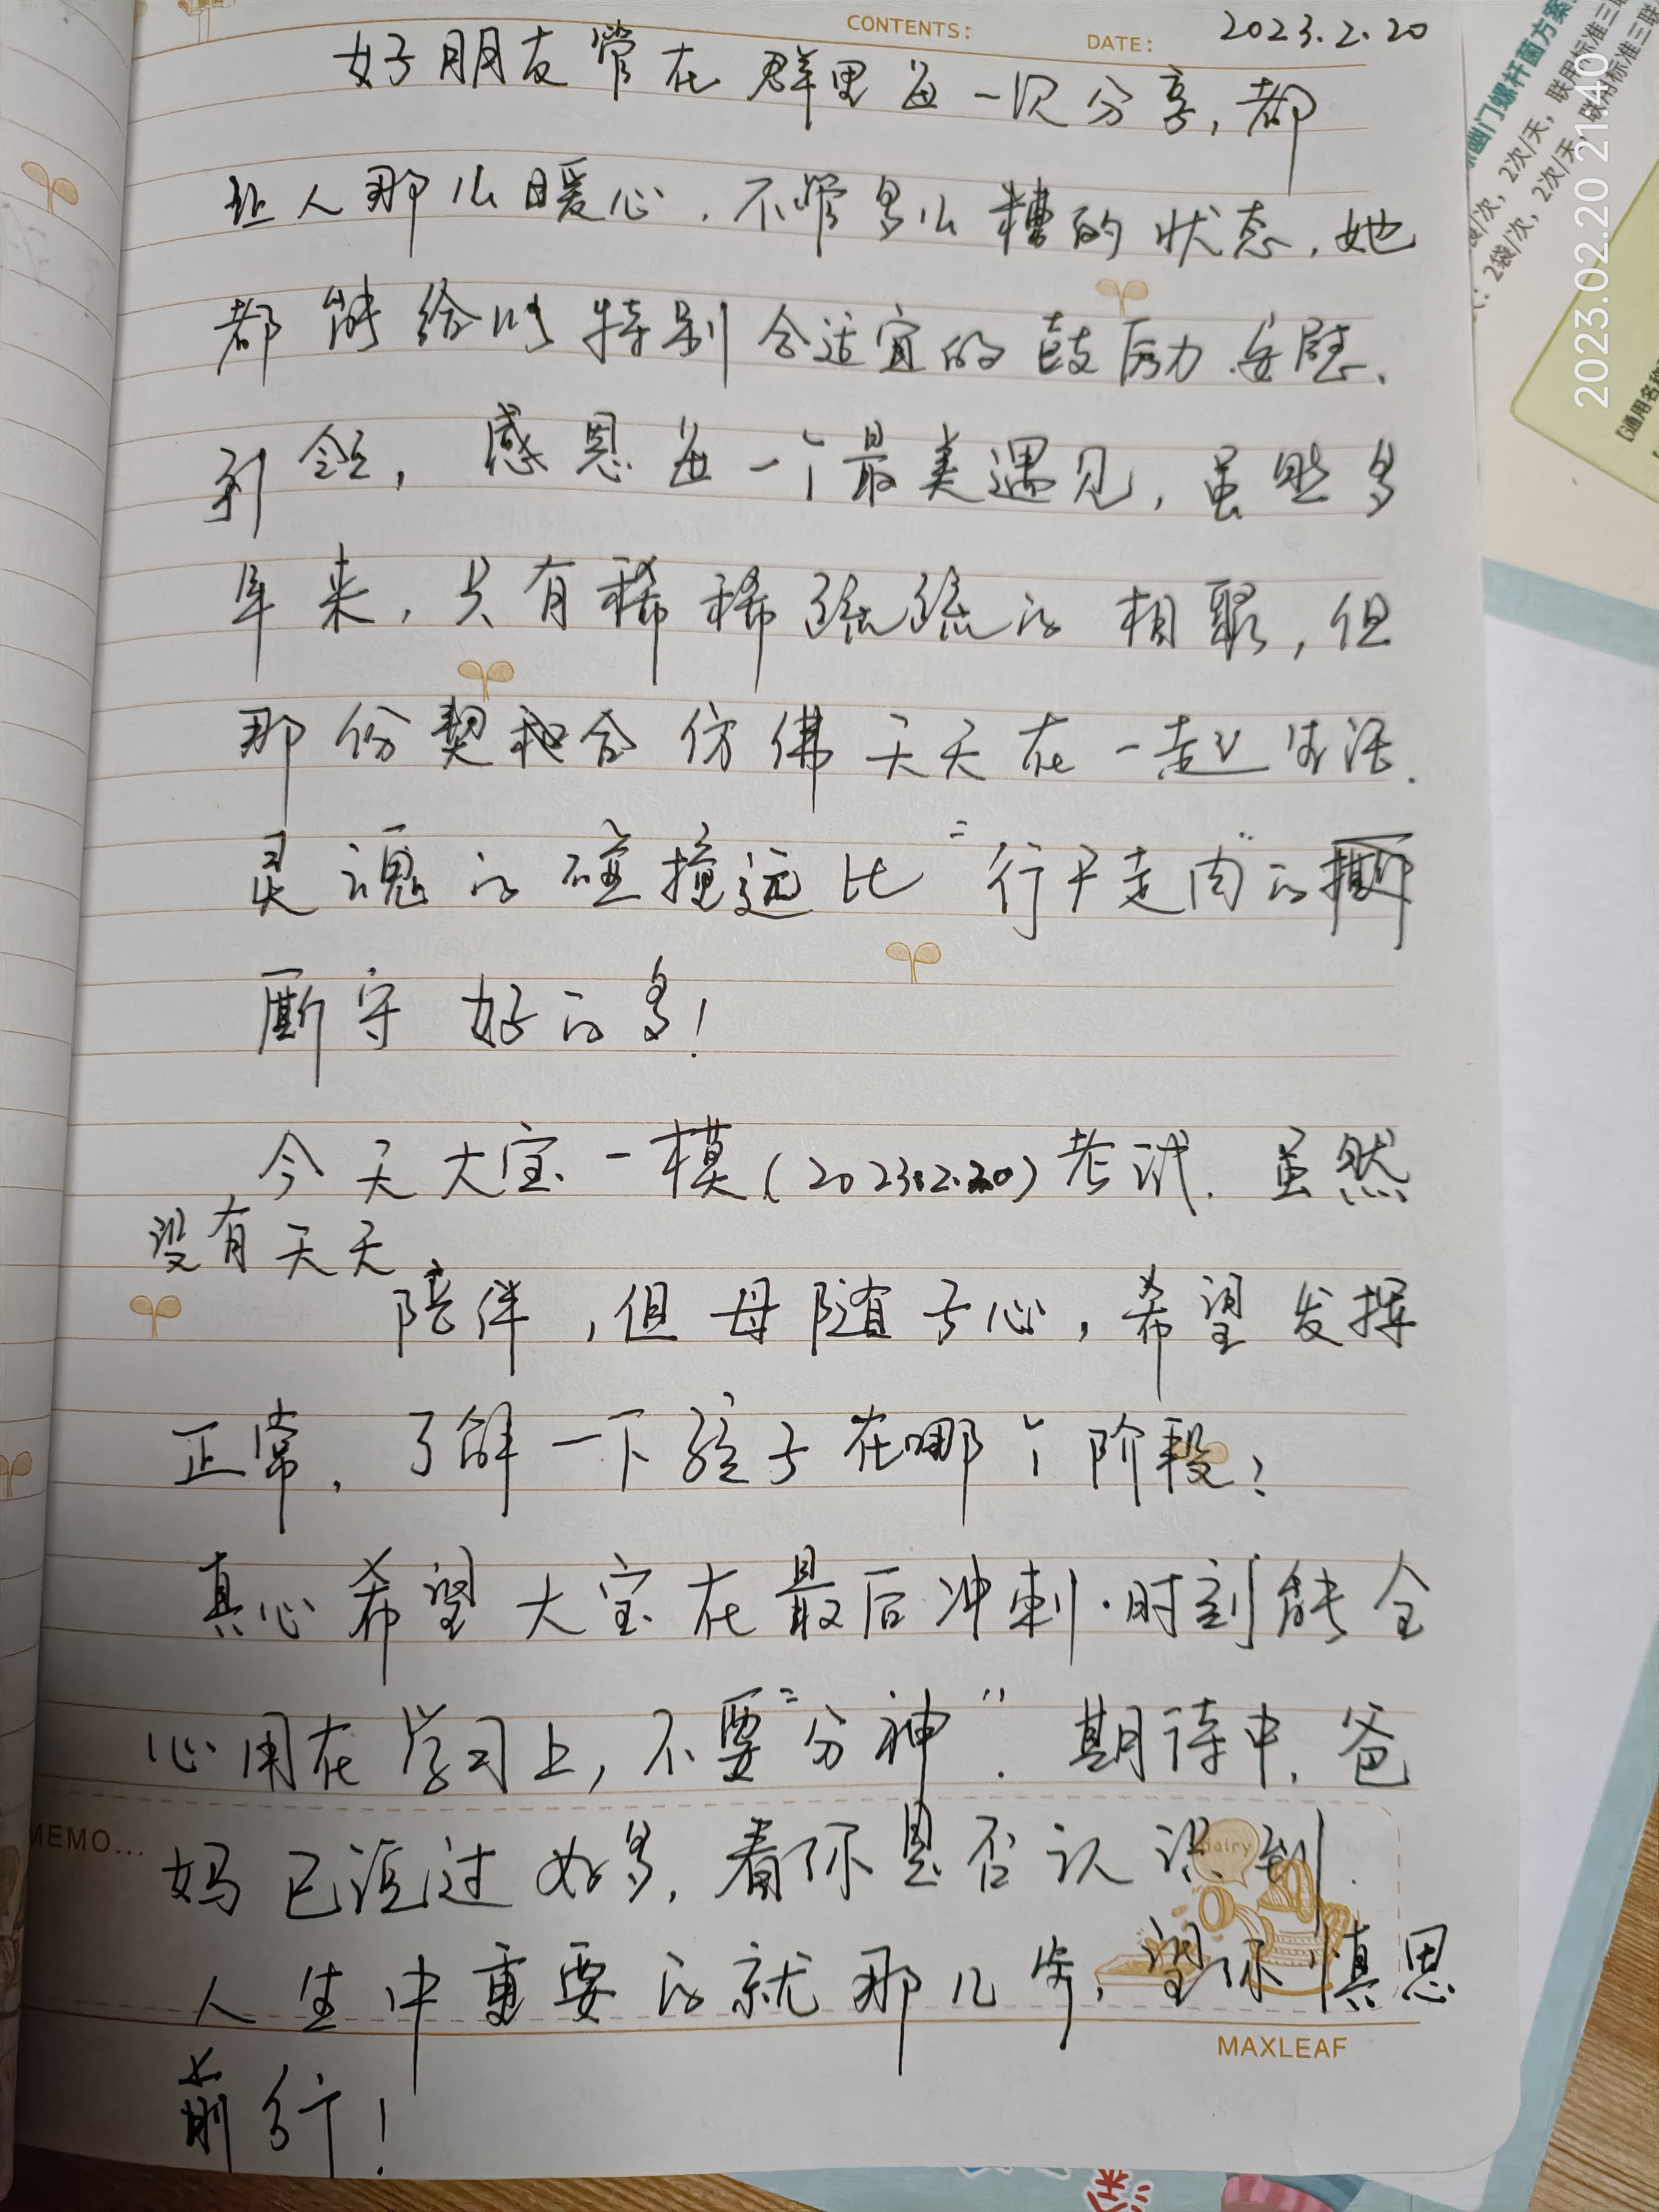 CONTENTS:
DATE: 2023.2.20
好朋友常在群里每一次分享,都
让人那么暖心.不管多么糟的状态,她
都能给以特别合适宜的鼓励.安慰、
引领,感恩每一个最美遇见,虽然多
年来,只有稀稀疏疏的相聚,但
那份契和合仿佛天天在一起生活.
灵魂的碰撞远比“行尸走肉”的
厮守好的多!
今天大宝一模(2023.2.20)考试.虽然
没有天天
陪伴,但母随子心,希望发挥
正常.了解一下孩子在哪个阶段?
真心希望大宝在最后冲刺.时刻能全
心用在学习上,不要“分神”.期待中.爸
妈已说过好多,看你是否认识到.
人生中重要的就那几步,望你慎思
前行!
MEMO...
dairy
MAXLEAF
幽门螺杆菌方案
2次/天,联用标准三联
2袋/次,2次/天,联用标准三联
【通用名称
2023.02.20 21:40